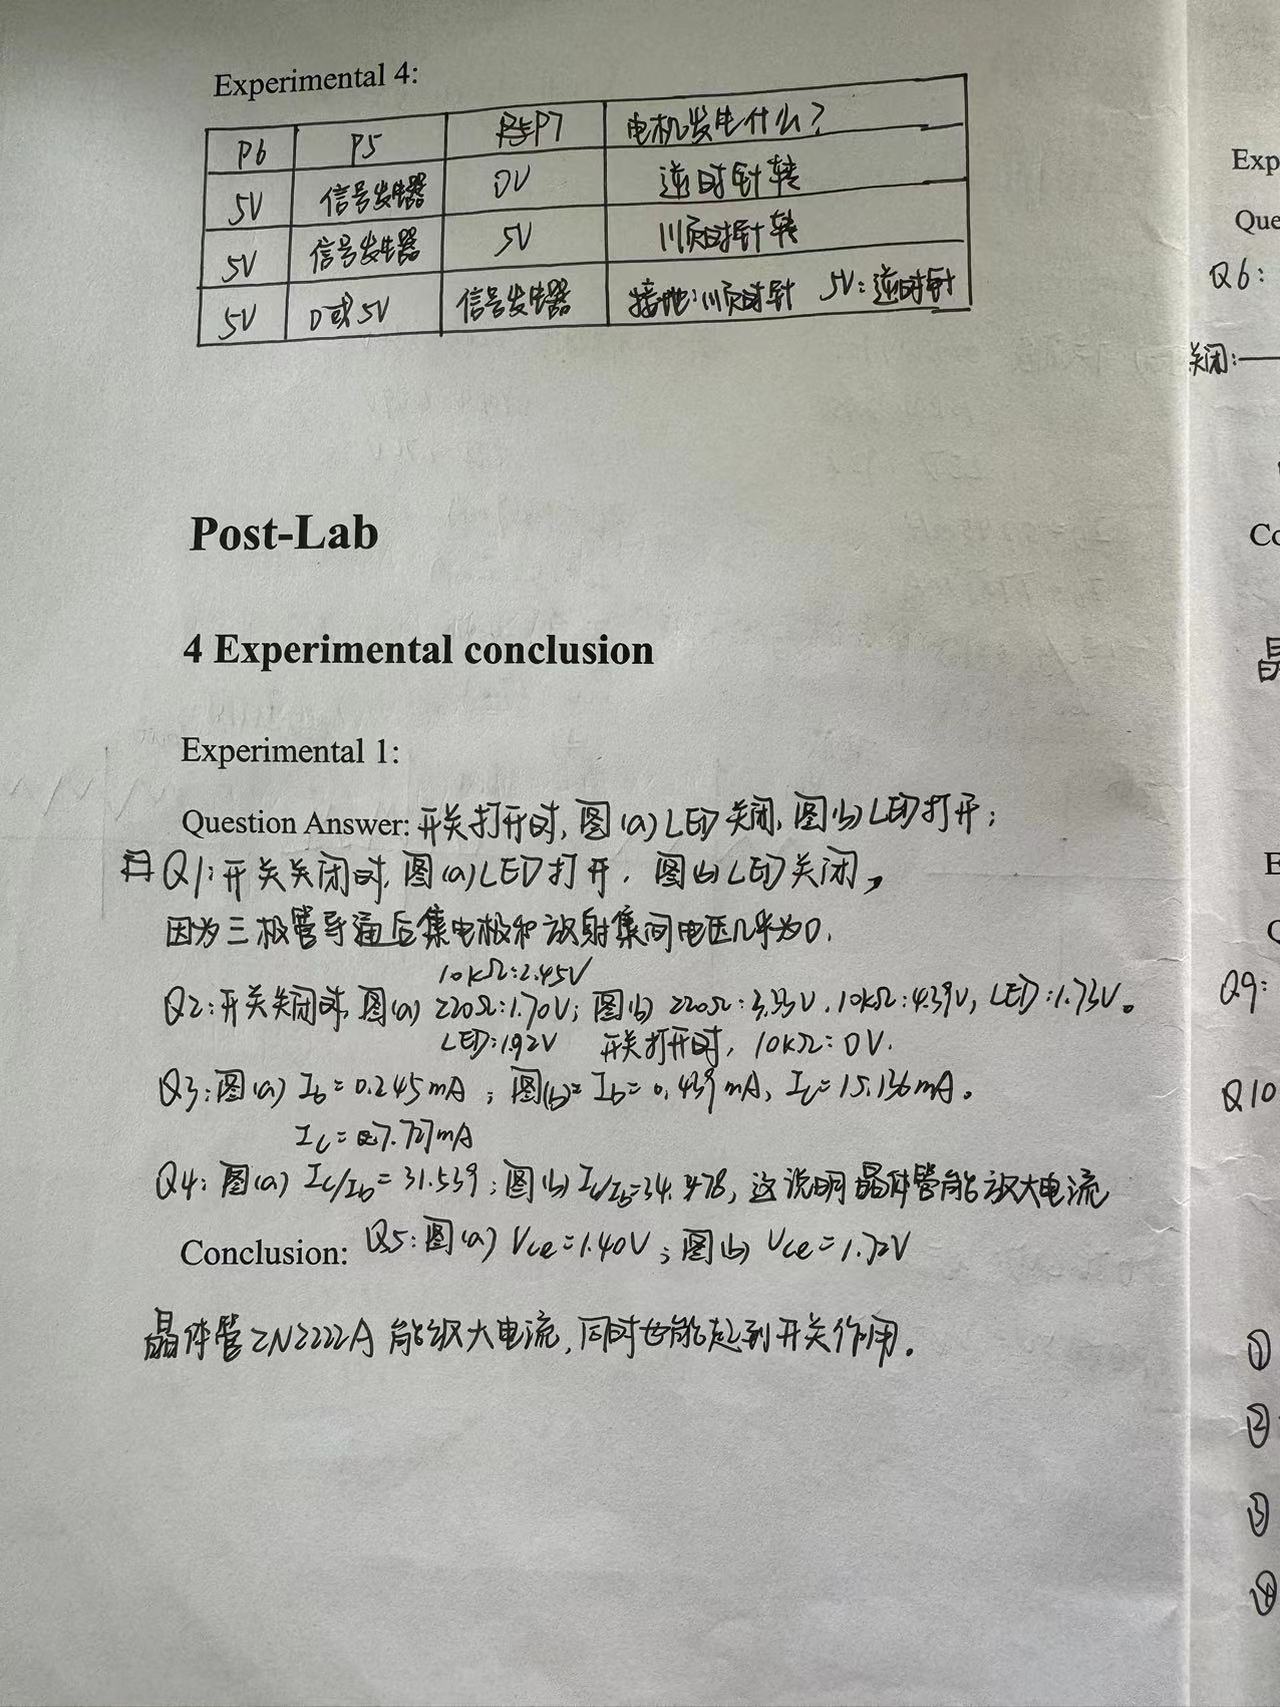 Experimental 4:
P6 P5 P7 电机发生什么?
5V 信号发生器 0V 逆时针转
5V 信号发生器 5V 顺时针转
5V 0或5V 信号发生器 接地:顺时针 5V:逆时针
Post-Lab
4 Experimental conclusion
Experimental 1:
Question Answer: 开关打开时, 图(a) LED 关闭, 图(b) LED 打开;
Q1: 开关关闭时, 图(a) LED 打开, 图(b) LED 关闭,
因为三极管导通后集电极和放射集间电压几乎为0.
10kΩ:2.45V
Q2:开关关闭时,图(a) 220Ω:1.70V; 图(b) 220Ω:3.33V, 10kΩ:4.39V, LED:1.73V。
LED:1.92V 开关打开时, 10kΩ=0V.
Q3:图(a) Ib=0.245mA ; 图(b)= Ib=0.439mA, Ic=15.136mA。
Ic=7.727mA
Q4: 图(a) Ic/Ib=31.539; 图(b) Ic/Ib=34.478, 这说明晶体管能放大电流
Conclusion: Q5:图(a) Vce=1.40V; 图(b) Vce=1.72V
晶体管2N2222A 能放大电流, 同时也能起到开关作用.
Exp
Que
Q6:
关闭:
Co
晶
E
Q
Q9:
Q10
①
②
③
④